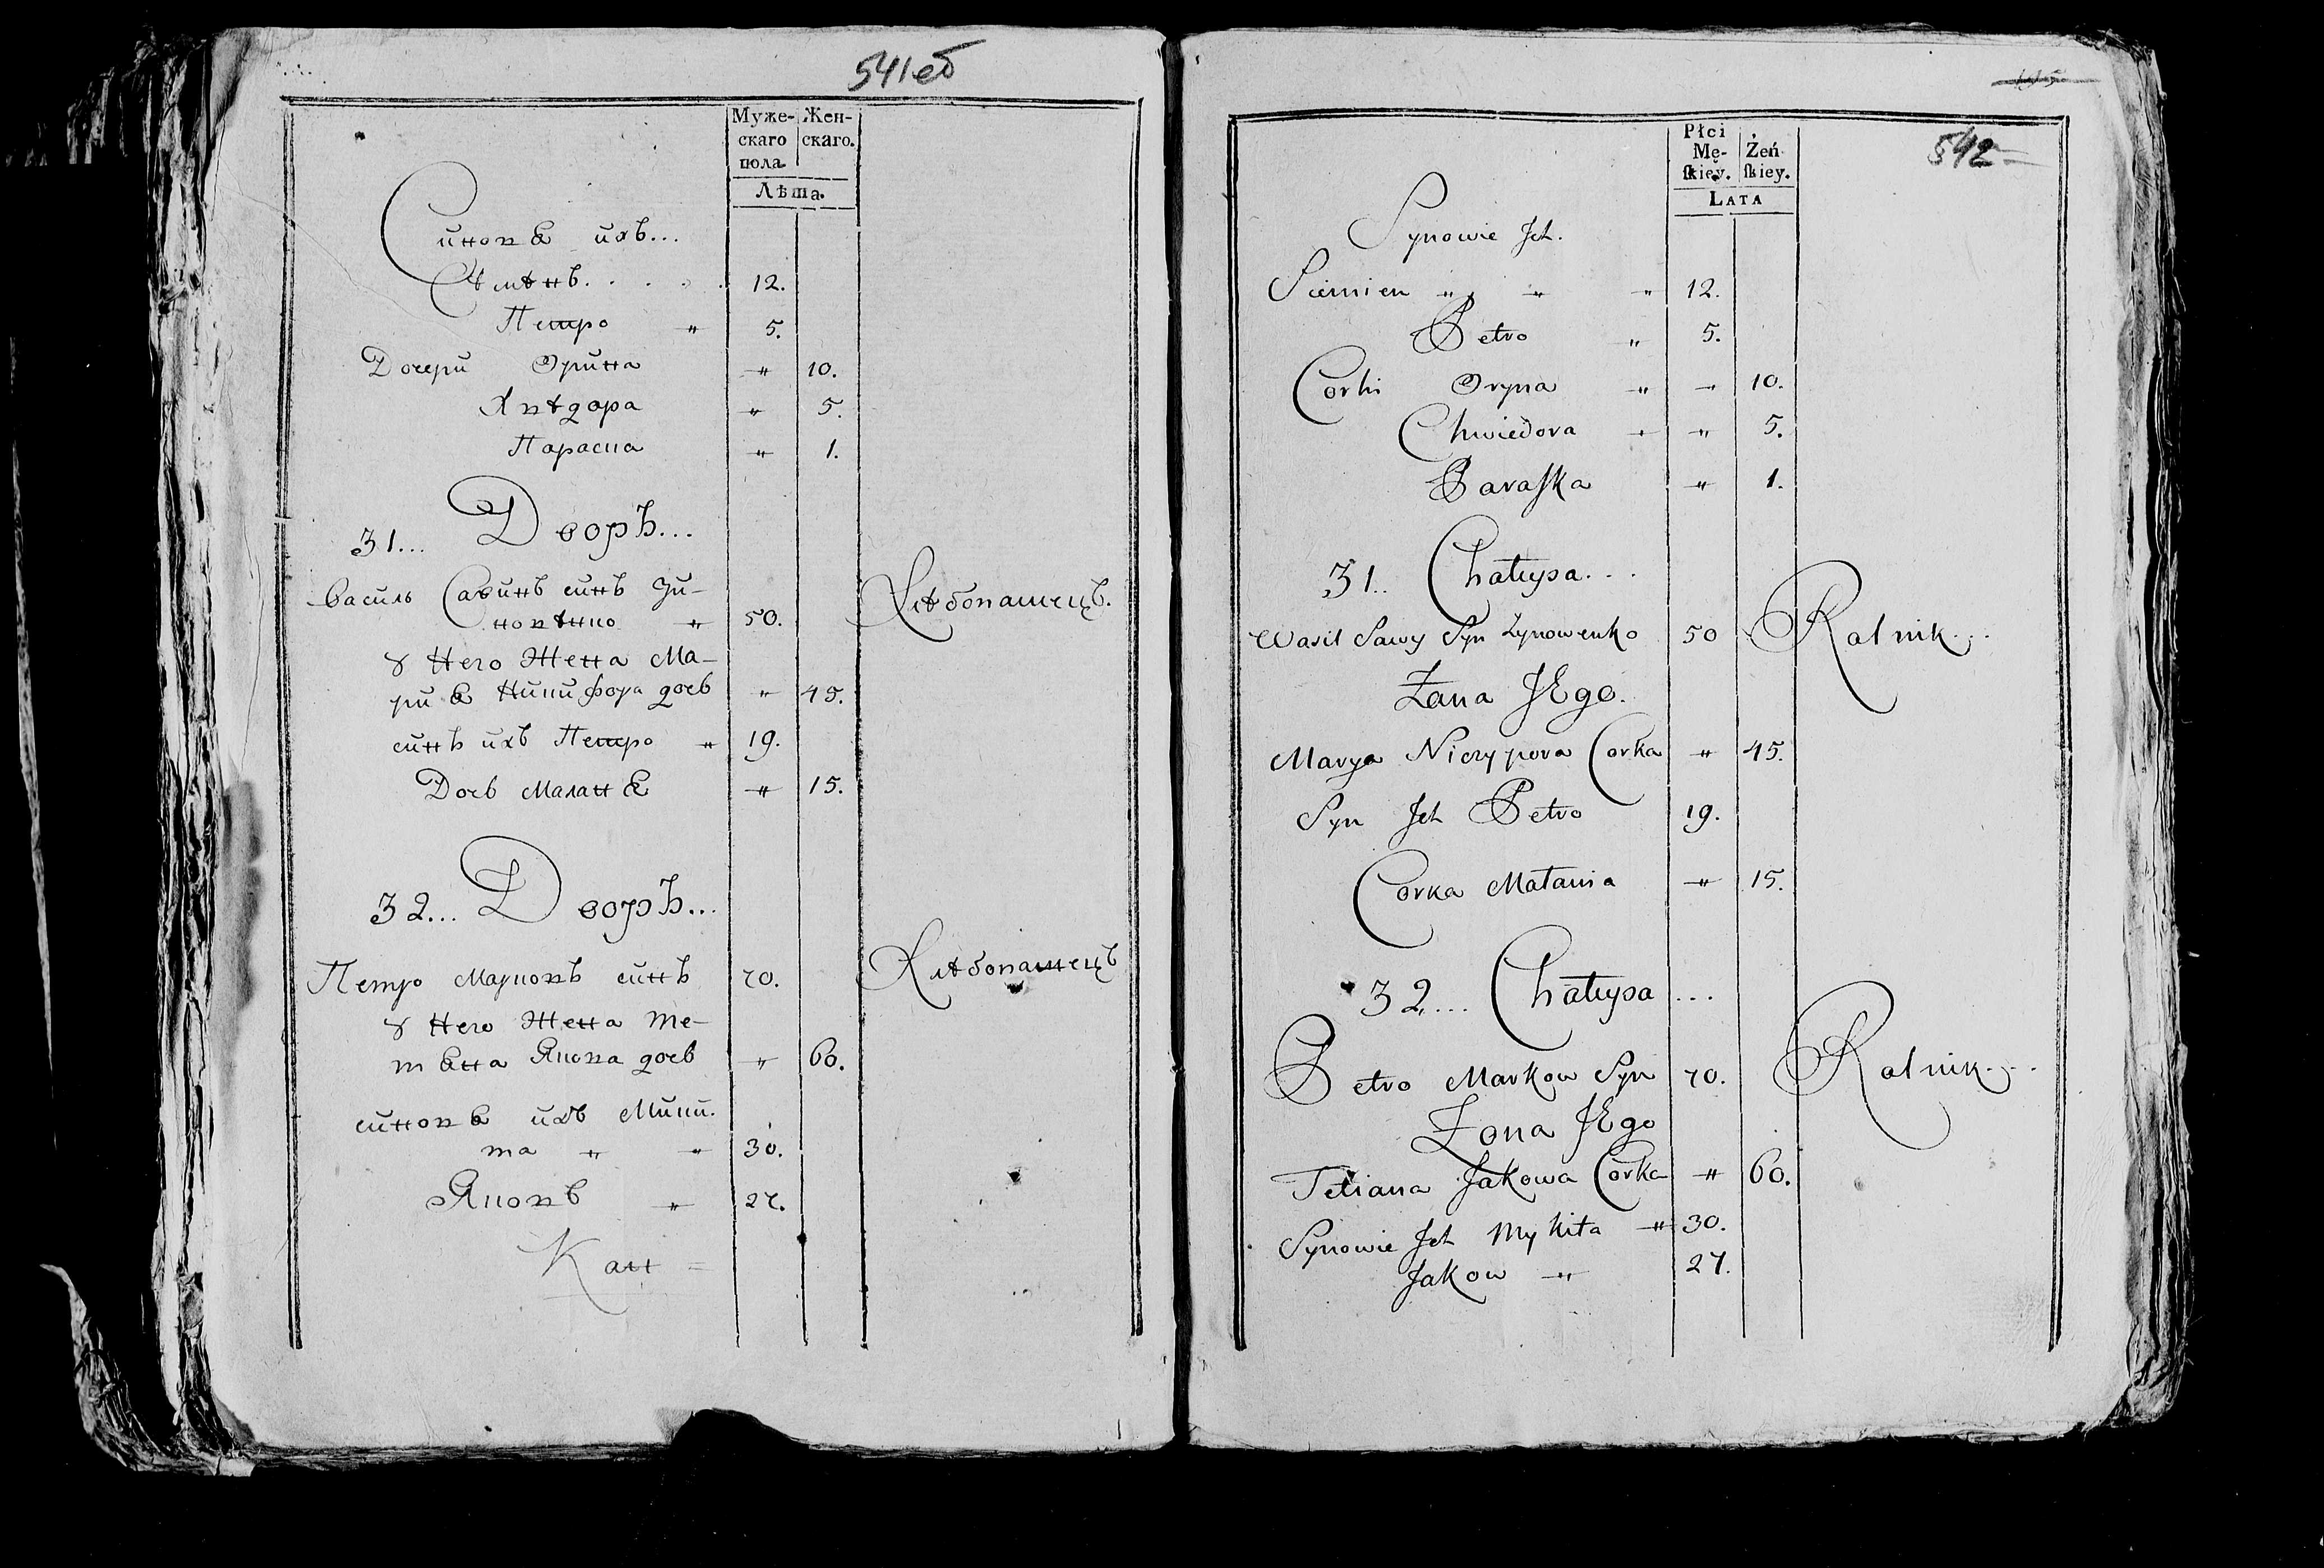 541об
Муже- Жен-
скаго скаго.
пола.
Лѣта.
Синовя ихъ...
Сѣмѣнъ. . . . . 12.
Петро " 5.
Дочери Орина " 10.
Хвѣдора " 5.
Параска " 1.
31... Дворъ...
Василь Савинъ синъ Зи- Хлѣбопашецъ.
новѣнко " 50.
У Него Жена Ма-
рия Никифора дочь " 45.
синъ ихъ Петро " 19.
Дочь Маланя " 15.
32... Дворъ...
Петро Марковъ синъ 70. Хлѣбопашецъ
У Него Жена Те-
тяна Якова дочь " 60.
синовя ихъ Мики-
та " " 30.
Яковъ " 27.
542
Płci
Mę- Żeń
skiey. skiey.
LATA
Synowie Jch.
Siemien " " " 12.
Petro " 5.
Corki Oryna " " 10.
Chwiedora " " 5.
Paraska " 1.
31.. Chałupa...
Wasil Sawy Syn Zynowenko 50 Rolnik...
Żona JEgo.
Marya Niczypora Corka " 45.
Syn Jch Petro 19.
Corka Małania " 15.
32... Chałupa...
Petro Markow Syn 70. Rolnik...
Żona JEgo
Tetiana Jakowa Corka " 60.
Synowie Jch Mykita " 30.
Jakow " 27.